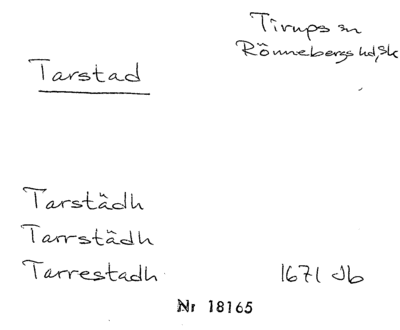 Tirups sn
Rönnebergs hd, Sk
Tarstad
Tarstädh
Tarrstädh
Tarrestadh 1671 Jb
Nr 18165